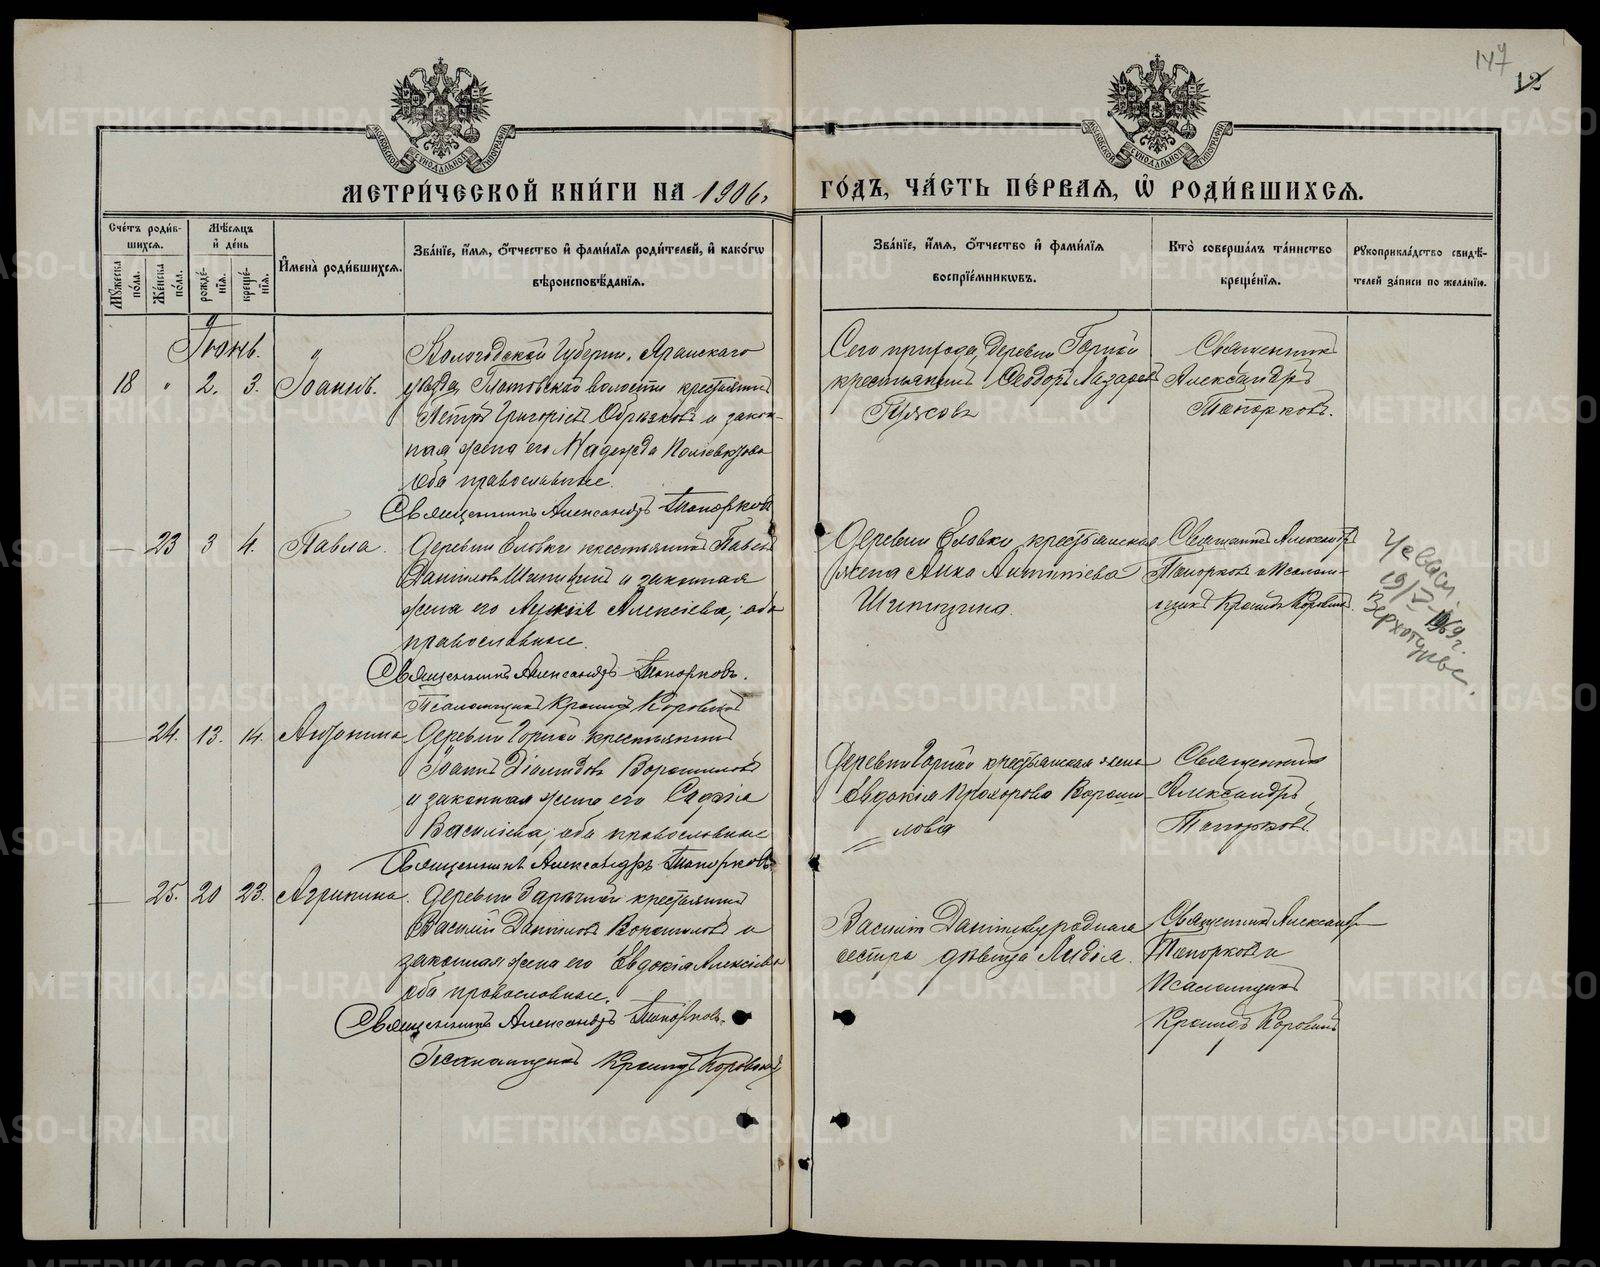 147
12
МОСКОВСКОЙ СѴНОДАЛЬНОЙ ТИПОГРАФІИ
МОСКОВСКОЙ СѴНОДАЛЬНОЙ ТИПОГРАФІИ
МЕТРИ́ЧЕСКОЙ КНИ́ГИ НА 1906,
ГО́ДЪ, ЧА́СТЬ ПЕ́РВАЯ, Ѡ҆ РОДИ́ВШИХСЯ.
Сче́тъ роди́в-
шихся.
Мꙋ́жеска по́ла.
Же́нска по́ла.
Мѣ́сяцъ
и҆ де́нь
рожде́-
нїя.
креще́-
нїя.
И҆мена̀ роди́вшихся.
Зва́нїе, и҆́мя, о҆́тчество и҆ фами́лїя роди́телей, и҆ како́гѡ
вѣроисповѣ́данїя.
Зва́нїе, и҆́мя, о҆́тчество и҆ фами́лїя
воспрїе́мникѡвъ.
Кто̀ соверша́лъ та́инство
креще́нїя.
Рꙋкоприкла́дство свидѣ́-
телей за́писи по жела́нїю.
Іюнь.
18 " 2. 3. Іоаннъ.
Вологодской Губерніи, Яранскаго
уѣзда, волости крестьянинъ
Петръ Григоріевъ Образковъ и закон-
ная жена его Надежда
оба православные.
Священникъ Александръ Топорковъ
Сего прихода, деревни Горной
крестьянинъ Ѳеодоръ Лазаревъ
Гулясовъ
Священникъ
Александръ
Топорковъ.
23 3 4. Павла.
Деревни Еловки крестьянинъ Павелъ
Даніиловъ Шипицинъ и законная
жена его Алексіева, оба
православные.
Священникъ Александръ Топорковъ.
Псаломщикъ Кронидъ Коровинъ
Деревни Еловки, крестьянская
жена Анна Антипіева
Шипицина.
Священникъ Александръ
Топорковъ и Псалом-
щикъ Кронидъ Коровинъ.
19/V-1969г.
Верхотурье.
24. 13. 14. Антонина
Деревни Горной крестьянинъ
Іоаннъ Діомидовъ Ворошиловъ
и законная жена его
Василіева, оба православные
Священникъ Александръ Топорковъ
Деревни Горной крестьянская жена
Евдокія Прохорова Вороши-
лова
Священникъ
Александръ
Топорковъ.
25. 20 23. Агрипина.
Деревни Заречной крестьянинъ
Василій Даніиловъ Ворошиловъ и
законная жена его Евдокія Алексіева
оба православные.
Священникъ Александръ Топорковъ.
Псаломщикъ Кронидъ Коровинъ
Василія Даніилова родная
сестра дѣвица Лидія.
Священникъ Александръ
Топорковъ и
Псаломщикъ
Кронидъ Коровинъ
METRIKI.GASO-URAL.RU